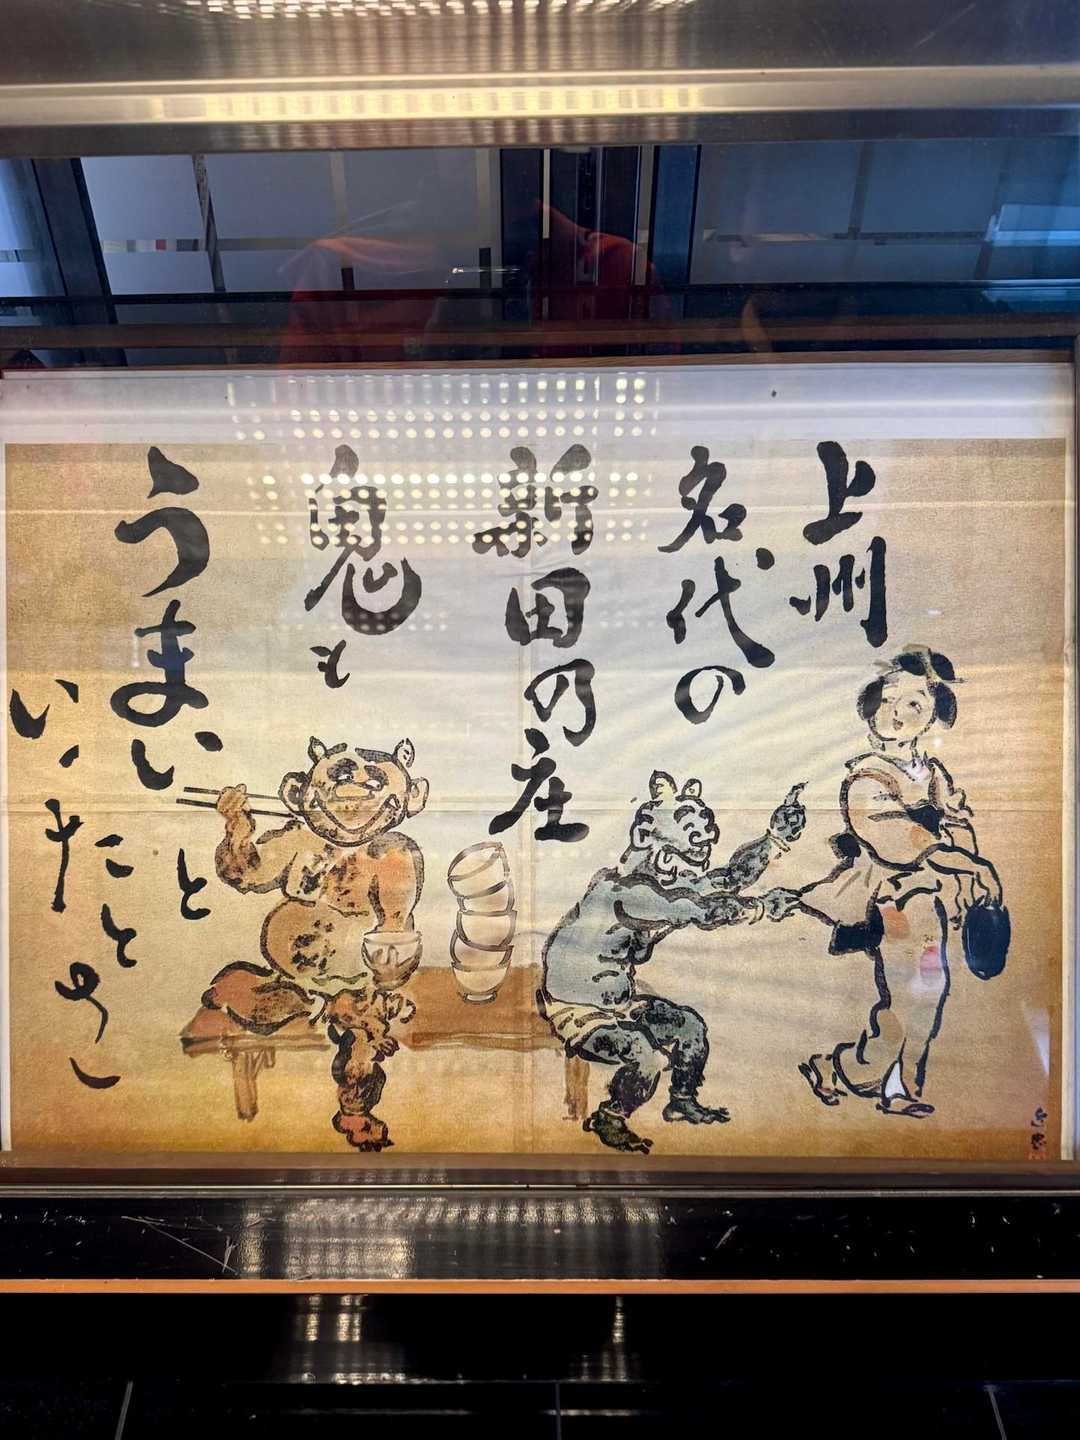 上州
名代の
新田乃庄
鬼も
うまいと
いったとさ